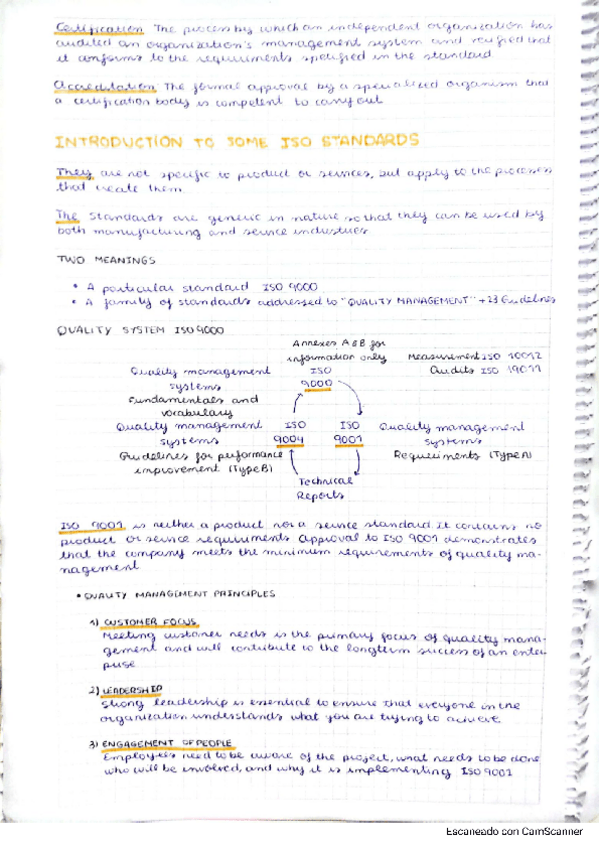 Certification The process by which an independent organization has
audited an organization's management system and verified that
it conforms to the requirements specified in the standard
Accreditation The formal approval by a specialized organism that
a certification body is competent to carry out
INTRODUCTION TO SOME ISO STANDARDS
They are not specific to product or services, but apply to the processes
that create them
The standards are generic in nature so that they can be used by
both manufacturing and service industries
TWO MEANINGS
• A particular standard ISO 9000
• A family of standards addressed to "QUALITY MANAGEMENT" + 23 Guidelines
QUALITY SYSTEM ISO 9000
Annexes A & B for
information only
Measurement ISO 10012
Audits ISO 19011
Quality management
systems
Fundamentals and
vocabulary
ISO
9000
Quality management
systems
Guidelines for performance
improvement (Type B)
ISO
9004
ISO
9001
Quality management
systems
Requirements (Type A)
Technical
Reports
ISO 9001 is neither a product nor a service standard. It contains no
product or service requirements approval to ISO 9001 demonstrates
that the company meets the minimum requirements of quality ma-
nagement
• QUALITY MANAGEMENT PRINCIPLES
1) CUSTOMER FOCUS
Meeting customer needs is the primary focus of quality mana-
gement and will contribute to the longterm success of an enter-
prise
2) LEADERSHIP
Strong leadership is essential to ensure that everyone in the
organization understands what you are trying to achieve
3) ENGAGEMENT OF PEOPLE
Employees need to be aware of the project, what needs to be done
who will be involved, and why it is implementing ISO 9001
Escaneado con CamScanner